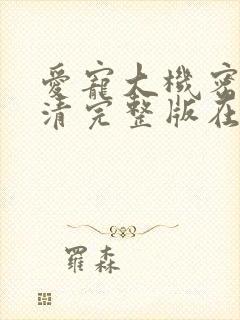 愛寵大機密
清完整版在
羅森